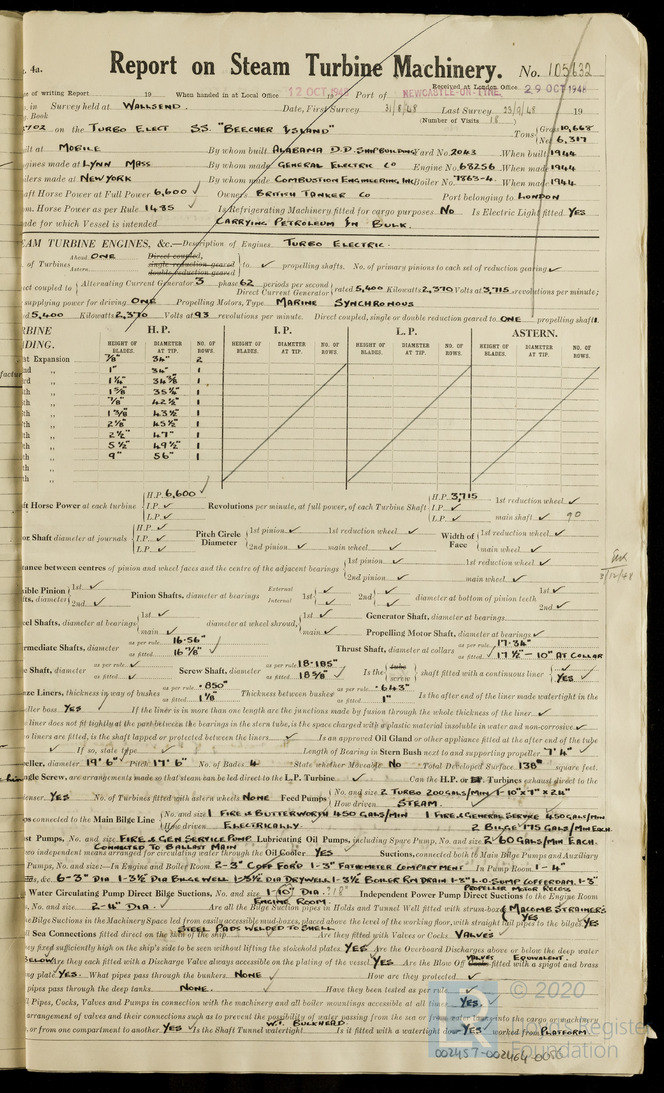 4a.
Report on Steam Turbine Machinery. No. 105632
of writing Report 19 When handed in at Local Office 12 OCT 1948 Port of NEWCASTLE-ON-TYNE. Received at London Office 29 OCT 1948
in Survey held at WALLSEND. Date, First Survey 31/8/48 Last Survey 23/9/48 19
Book (Number of Visits 18)
on the TURBO ELECT S.S. "BEECHER ISLAND" Tons Gross 10,668 Net 6,317
built at MOBILE By whom built ALABAMA D.D. SHIPBUILDING Yard No. 2043 When built 1944
Engines made at LYNN MASS By whom made GENERAL ELECTRIC CO Engine No. 68256 When made 1944
Boilers made at NEW YORK By whom made COMBUSTION ENGINEERING, INC Boiler No. 7863-4. When made 1944
Shaft Horse Power at Full Power 6,600 Owners BRITISH TANKER CO Port belonging to LONDON
Nom. Horse Power as per Rule 1485 Is Refrigerating Machinery fitted for cargo purposes NO Is Electric Light fitted YES
Trade for which Vessel is intended CARRYING PETROLEUM IN BULK.
STEAM TURBINE ENGINES, &c.—Description of Engines TURBO ELECTRIC
No. of Turbines Ahead ONE Astern Direct coupled, single reduction geared double reduction geared to propelling shafts. No. of primary pinions to each set of reduction gearing
direct coupled to Alternating Current Generator 3 phase 62 periods per second Direct Current Generator rated 5,400 Kilowatts 2,370 Volts at 3,715 revolutions per minute;
supplying power for driving ONE Propelling Motors, Type MARINE SYNCHRONOUS
rated 5,400 Kilowatts 2,370 Volts at 93 revolutions per minute. Direct coupled, single or double reduction geared to ONE propelling shaft
TURBINE BLADING. H.P. I.P. L.P. ASTERN.
HEIGHT OF BLADES. DIAMETER AT TIP. NO. OF ROWS. HEIGHT OF BLADES. DIAMETER AT TIP. NO. OF ROWS. HEIGHT OF BLADES. DIAMETER AT TIP. NO. OF ROWS. HEIGHT OF BLADES. DIAMETER AT TIP. NO. OF ROWS.
1st Expansion 7/8" 34" 2
1" 34" 1
1 1/4" 34 3/8 1
1 5/8" 35 1/4" 1
7/8" 42 1/2" 1
1 3/8" 43 1/2" 1
2 1/8" 45 1/2" 1
2 1/2" 47" 1
5 1/2" 49 1/2" 1
9" 56" 1
Shaft Horse Power at each turbine H.P. 6,600 I.P. L.P. Revolutions per minute, at full power, of each Turbine Shaft H.P. 3,715 I.P. L.P. 1st reduction wheel main shaft 90
Rotor Shaft diameter at journals H.P. I.P. L.P. Pitch Circle Diameter 1st pinion 1st reduction wheel 2nd pinion main wheel Width of Face 1st reduction wheel main wheel
Distance between centres of pinion and wheel faces and the centre of the adjacent bearings 1st pinion 1st reduction wheel 2nd pinion main wheel
Flexible Pinion Shafts, diameter 1st 2nd Pinion Shafts, diameter at bearings External Internal 1st 2nd diameter at bottom of pinion teeth 1st 2nd
Wheel Shafts, diameter at bearings 1st main diameter at wheel shroud, 1st main Generator Shaft, diameter at bearings Propelling Motor Shaft, diameter at bearings
Intermediate Shafts, diameter as per rule 16.56" as fitted 16 7/8" Thrust Shaft, diameter at collars as per rule 17.34" as fitted 17 1/2" - 10" AT COLLAR
Tube Shaft, diameter as per rule as fitted Screw Shaft, diameter as per rule 18.185" as fitted 18 5/8" Is the tube screw shaft fitted with a continuous liner YES
Bronze Liners, thickness in way of bushes as per rule .850" as fitted 1 1/8" Thickness between bushes as per rule .643" as fitted 1" Is the after end of the liner made watertight in the
propeller boss YES If the liner is in more than one length are the junctions made by fusion through the whole thickness of the liner
If the liner does not fit tightly at the part between the bearings in the stern tube, is the space charged with a plastic material insoluble in water and non-corrosive
If two liners are fitted, is the shaft lapped or protected between the liners Is an approved Oil Gland or other appliance fitted at the after end of the tube
If so, state type Length of Bearing in Stern Bush next to and supporting propeller 7' 4"
Propeller, diameter 19' 6" Pitch 17' 6" No. of Blades 4 State whether Moveable NO Total Developed Surface 138 square feet.
If Single Screw, are arrangements made so that steam can be led direct to the L.P. Turbine Can the H.P. or I.P. Turbines exhaust direct to the
Condenser YES No. of Turbines fitted with astern wheels NONE Feed Pumps No. and size 2 TURBO 200 GALS/MIN 1-10"x7"x24" How driven STEAM.
Pumps connected to the Main Bilge Line No. and size 1 FIRE & BUTTERWORTH 450 GALS/MIN 1 FIRE & GENERAL SERVICE 450 GALS/MIN How driven ELECTRICALLY 2 BILGE 175 GALS/MIN EACH.
Ballast Pumps, No. and size FIRE & GEN SERVICE PUMP CONNECTED TO BALLAST MAIN Lubricating Oil Pumps, including Spare Pump, No. and size 2-60 GALS/MIN EACH.
two independent means arranged for circulating water through the Oil Cooler YES Suctions, connected both to Main Bilge Pumps and Auxiliary
Pumps, No. and size:—In Engine and Boiler Room 2-3" COFF FORD 1-3" FATHOMETER COMPARTMENT In Pump Room 1-4"
6-3" DIA 1-3 1/2 DIA BILGE WELL 1-3 1/2 DIA DRYWELL 1-3 1/2 BOILER RM DRAIN 1-3" L.O. SUMP COFFERDAM, 1-3" PROPELLER MOTOR RECESS
Water Circulating Pump Direct Bilge Suctions, No. and size 1-18" DIA ENGINE ROOM. Independent Power Pump Direct Suctions to the Engine Room
No. and size 2-4" DIA. Are all the Bilge Suction pipes in Holds and Tunnel Well fitted with strum-boxes MACOMB STRAINERS YES
Bilge Suctions in the Machinery Space led from easily accessible mud-boxes, placed above the level of the working floor, with straight tail pipes to the bilges YES
Sea Connections fitted direct on the skin of the ship STEEL PADS WELDED TO SHELL Are they fitted with Valves or Cocks VALVES
they fixed sufficiently high on the ship's side to be seen without lifting the stokehold plates YES Are the Overboard Discharges above or below the deep water
BELOW Are they each fitted with a Discharge Valve always accessible on the plating of the vessel YES Are the Blow Off VALVES Cocks fitted with a spigot and brass EQUIVALENT.
covering plate YES. What pipes pass through the bunkers NONE How are they protected
pipes pass through the deep tanks NONE. Have they been tested as per rule
all Pipes, Cocks, Valves and Pumps in connection with the machinery and all boiler mountings accessible at all times YES,
arrangement of valves and their connections such as to prevent the possibility of water passing from the sea or from water tanks into the cargo or machinery
or from one compartment to another YES Is the Shaft Tunnel watertight W.T. BULKHEAD Is it fitted with a watertight door YES worked from PLATFORM.
8/12/48
© 2020
Lloyd's Register
Foundation
002457-002464-0056